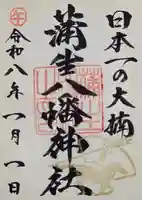 日本一の大楠
蒲生八幡神社
令和八年一月一日